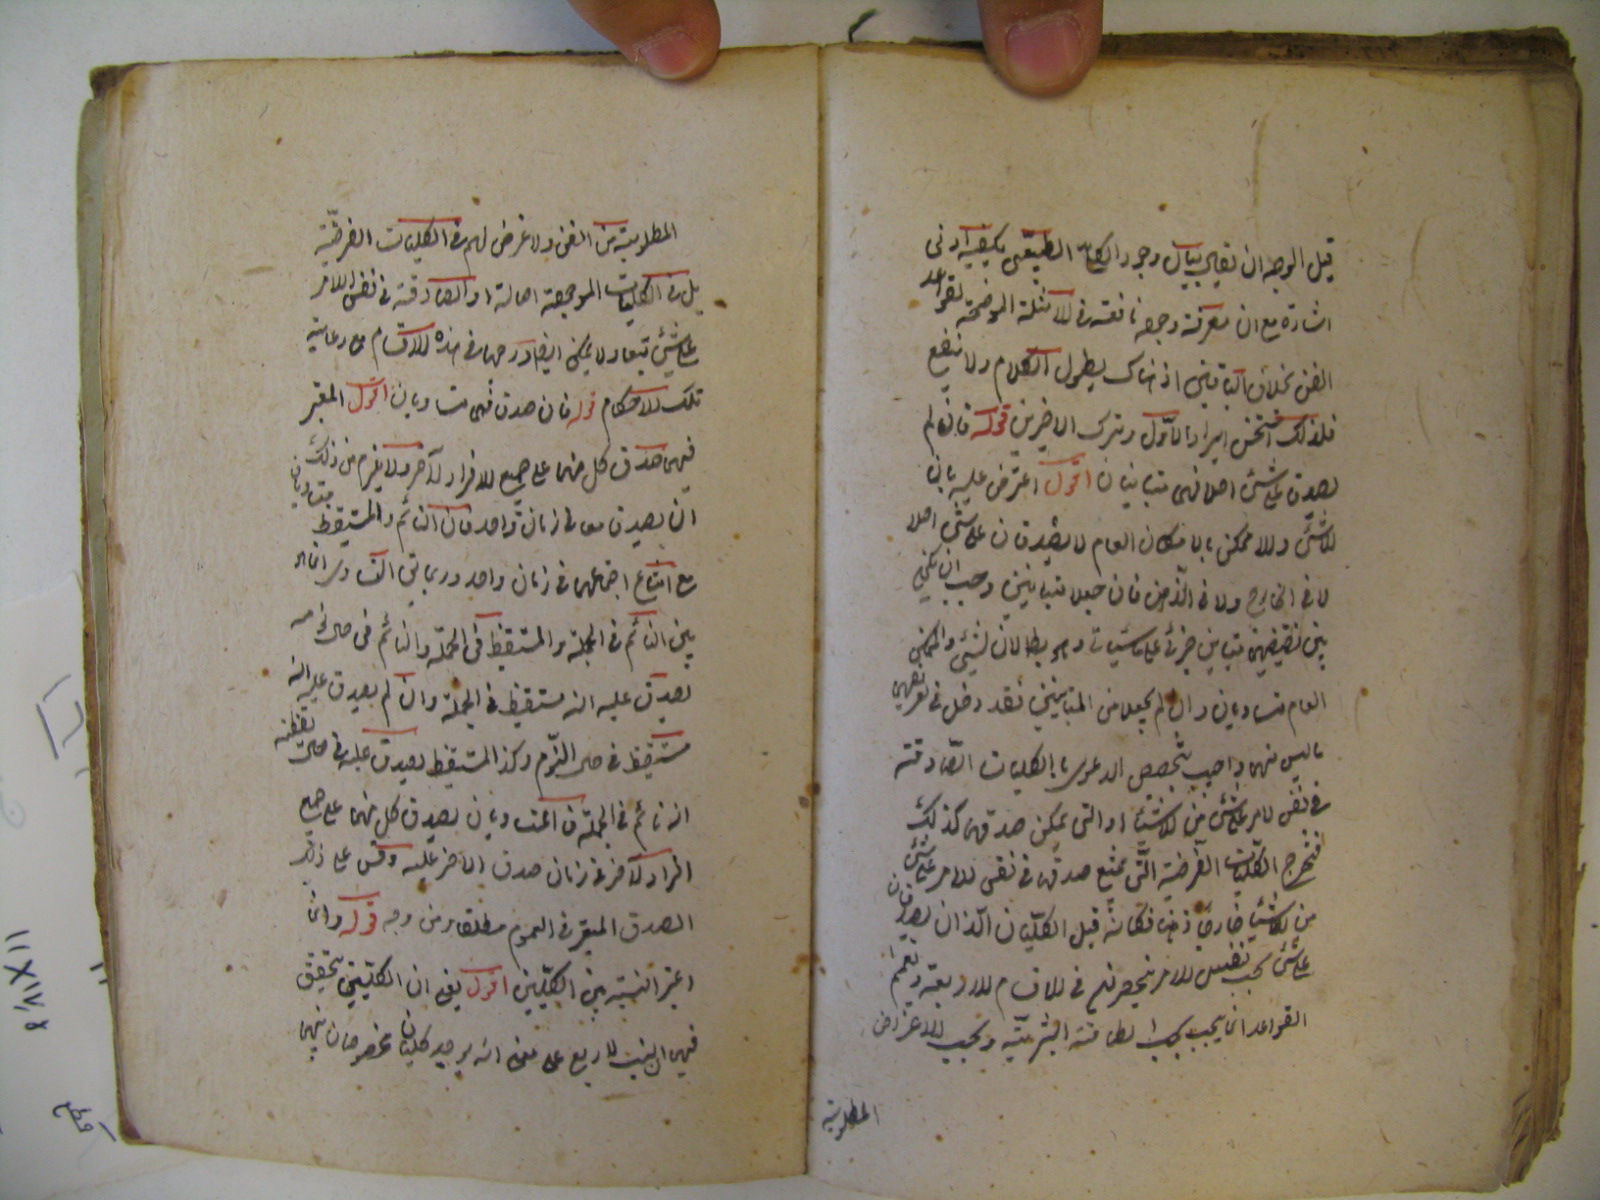 قيل الوجه ان يقال بيان وجود الكلى الطبيعى يكفيه ادنى
اشارة مع ان معرفة وجوده نافعة فى الامثلة الموضحة لقواعد
الفن بخلاف الباقيين اذ هناك يطول الكلام ولا ينفع
فلذلك استحسن ايراد الاول وترك الاخيرين قوله فان لم
يصدق على شئ اصلا فهما متباينان اقول اعترض عليه بان
اللاشئ واللاممكن بالامكان العام لا يصدقان على شئ اصلا
لا فى الخارج ولا فى الذهن فان جعلا متباينين وجب ان يكون
بين نقيضيهما تباين جزئى على ما سيأتى وهو باطل لان الشئ والممكن
العام متساويان وان لم يجعلا من المتباينين فقد دخل فى تعريفهما
ما ليس منهما واجيب بتخصيص الدعوى بالكليات الصادقة
فى نفس الامر على شئ من الاشياء او التى يمكن صدقها كذلك
فتخرج الكليات الفرضية التى يمتنع صدقها فى نفس الامر على شئ
من الاشياء خارجا وذهنا فكانه قيل الكليان اللذان يصدقان
على شئ بحسب نفس الامر منحصرتان فى الاقسام الاربعة وتعميم
القواعد انما يجب بحسب الطاقة البشرية وبحسب الاغراض
المطلوبية
المطلوبية من الفن ولا غرض لهم فى الكليات الفرضية
بل فى الكليات الموجودة اصالة او الصادقة فى نفس الامر
على شئ تبعا ولا يمكن ايضا درجها فى هذه الاقسام مع رعاية
تلك الاحكام قوله فان صدق فهما متساويان اقول المعتبر
فيهما صدق كل منهما على جميع افراد الاخر ولا يلزم من ذلك
ان يصدق معا فى زمان واحد فان النائم والمستيقظ متساويان
مع امتناع اجتماعهما فى زمان واحد وربما يقال التساوى انما هو
بين النائم فى الجملة والمستيقظ فى الجملة والنائم فى حال نومه
يصدق عليه انه مستيقظ فى الجملة وان لم يصدق عليه انه
مستيقظ فى حال النوم وكذا المستيقظ يصدق عليه فى حال يقظته
انه نائم فى الجملة فالمتساويان يصدق كل منهما على جميع
افراد الاخر فى زمان صدق الاخر عليه وقس على ذلك
الصدق المعتبر فى العموم مطلقا ومن وجه قوله وانما
اعتبر النسبة بين الكليين اقول يعنى ان الكليين يتحقق
فيهما النسب الاربع على معنى انه يوجد كليان مخصوصان بينهما